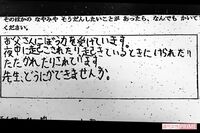 そのほかの なやみや そうだんしたいことが あったら、なんでも かいて
ください。
お父さんにぼう力を受けています。
夜中に起こされたり、起きているときにけられたり
たたかれたりされています。
先生、どうにかできませんか。